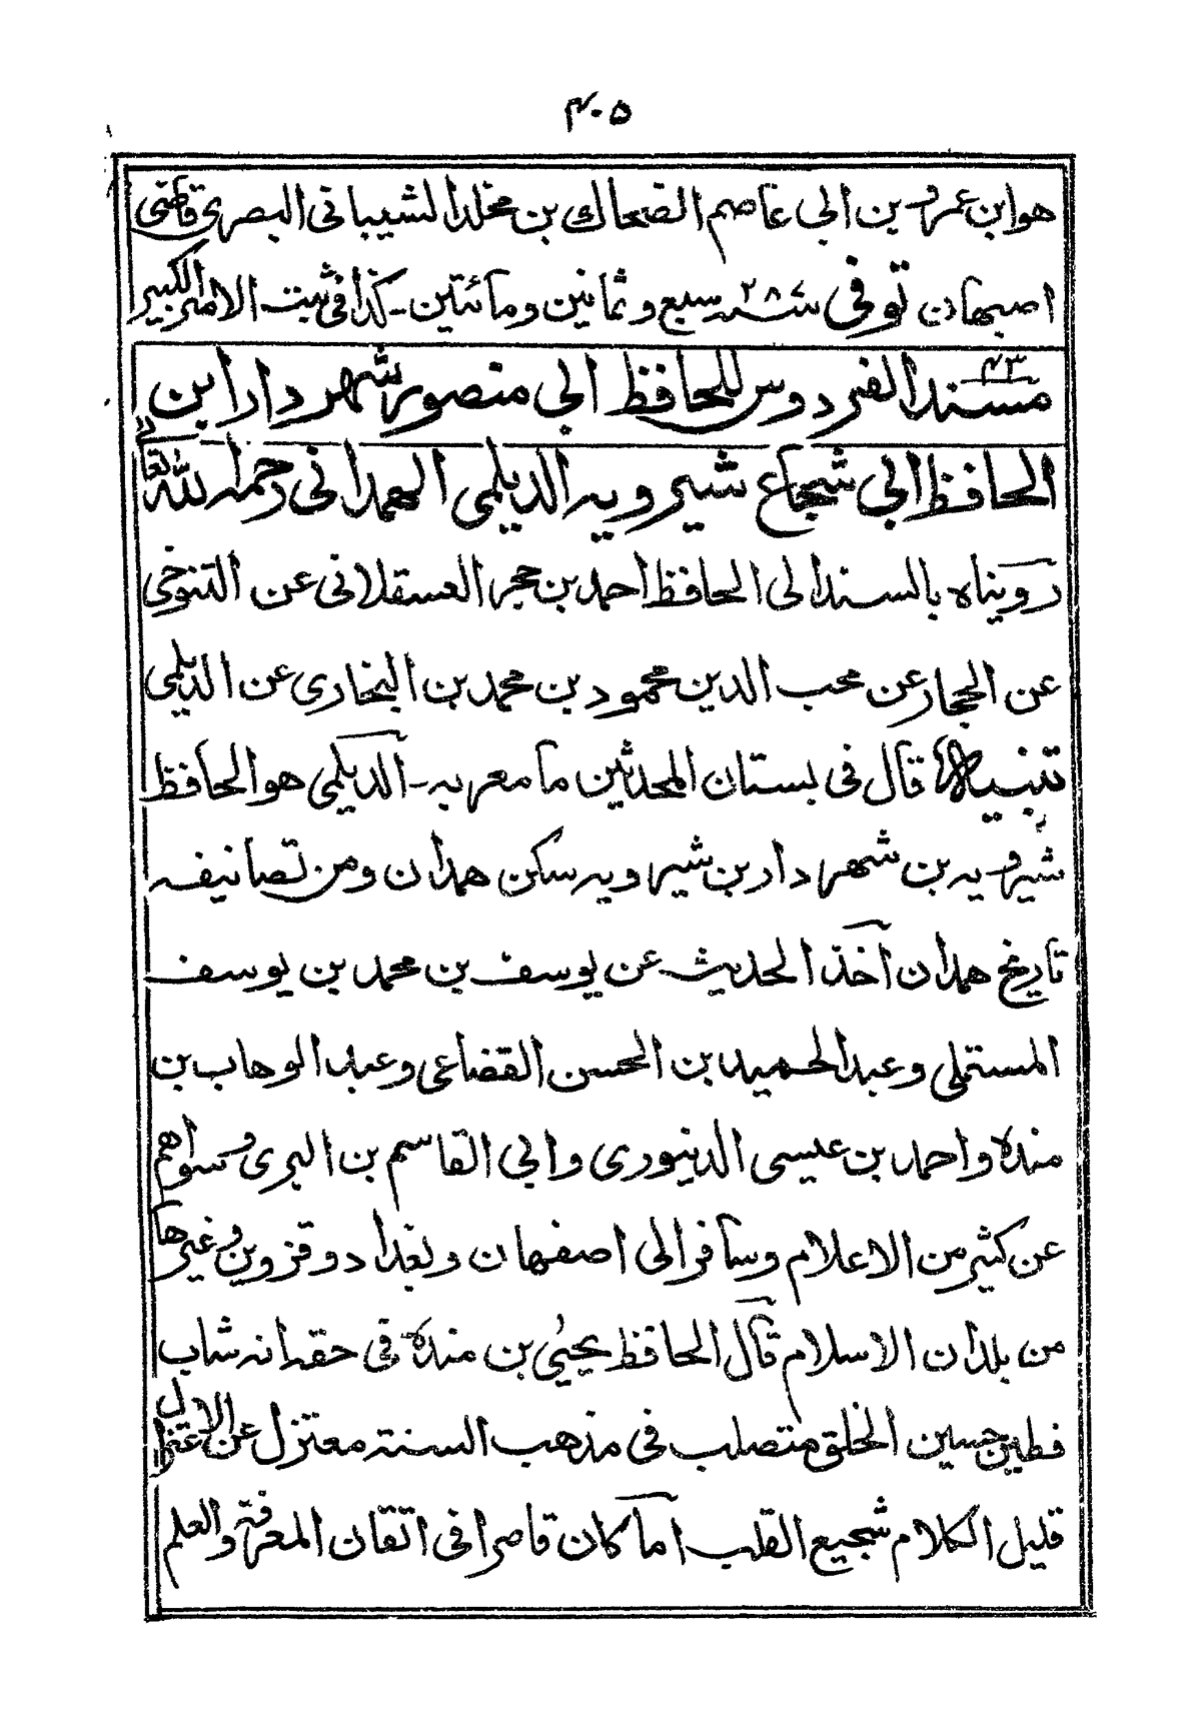 ٤٠٥
هو ابن عمرو بن ابي عاصم الضحاك بن مخلد الشيباني البصري قاضي
اصبهان توفي سنة ٢٨٧ سبع وثمانين ومائتين ـ كذا في ثبت الامير الكبير
٤٣ مسند الفردوس للحافظ ابي منصور شهردار ابن
الحافظ ابي شجاع شيرويه الديلمي الهمداني رحمه الله تعالى
رويناه بالسند الى الحافظ احمد بن حجر العسقلاني عن التنوخي
عن الحجار عن محب الدين محمود بن محمد بن البخاري عن الديلمي
تنبيه قال في بستان المحدثين ما معربه ـ الديلمي هو الحافظ
شيرويه بن شهردار بن شيرويه سكن همدان ومن تصانيفه
تاريخ همدان اخذ الحديث عن يوسف بن محمد بن يوسف
المستملي وعبد الحميد بن الحسن القضاعي وعبد الوهاب بن
منده واحمد بن عيسى الدينوري وابي القاسم بن البري وسواهم
عن كثير من الاعلام وسافر الى اصفهان وبغداد وقزوين وغيرها
من بلدان الاسلام قال الحافظ يحيى بن منده في حقه انه شاب
فطين حسين الخلق متصلب في مذهب السنة معتزل عن الاعتزال
قليل الكلام شجيع القلب اما كان قاصرا في اتقان المعرفة والعلم